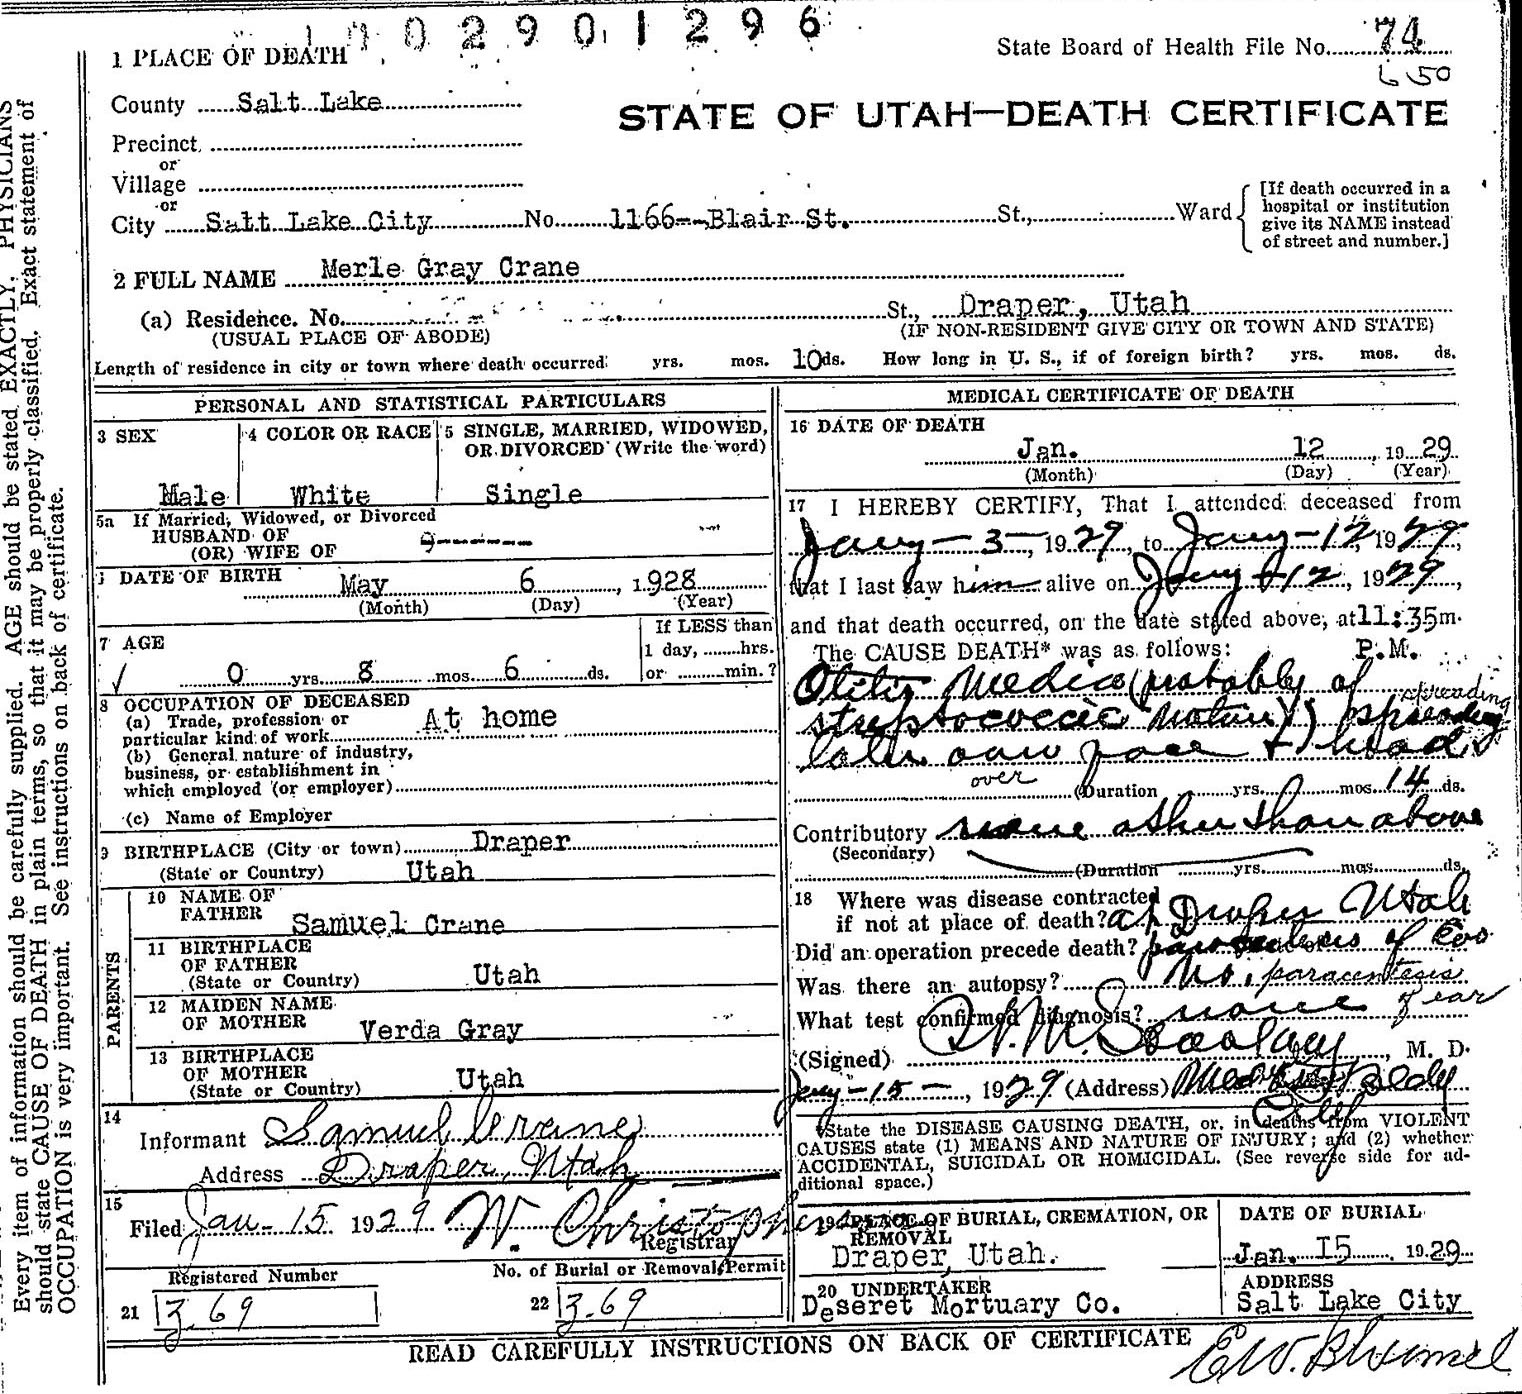 1002901296
State Board of Health File No. 74
650
1 PLACE OF DEATH
County Salt Lake
STATE OF UTAH—DEATH CERTIFICATE
Precinct
or
Village
or
City Salt Lake City No. 1166--Blair St. St., Ward
[If death occurred in a
hospital or institution
give its NAME instead
of street and number.]
2 FULL NAME Merle Gray Crane
(a) Residence. No. St., Draper, Utah
(USUAL PLACE OF ABODE) (IF NON-RESIDENT GIVE CITY OR TOWN AND STATE)
Length of residence in city or town where death occurred yrs. mos. 10 ds. How long in U. S., if of foreign birth? yrs. mos. ds.
PERSONAL AND STATISTICAL PARTICULARS
3 SEX 4 COLOR OR RACE 5 SINGLE, MARRIED, WIDOWED,
OR DIVORCED (Write the word)
Male White Single
5a If Married, Widowed, or Divorced
HUSBAND OF
(OR) WIFE OF
DATE OF BIRTH May 6, 1928
(Month) (Day) (Year)
7 AGE If LESS than
1 day, hrs.
0 yrs. 8 mos. 6 ds. or min.?
8 OCCUPATION OF DECEASED
(a) Trade, profession or
particular kind of work At home
(b) General nature of industry,
business, or establishment in
which employed (or employer)
(c) Name of Employer
9 BIRTHPLACE (City or town) Draper
(State or Country) Utah
PARENTS
10 NAME OF
FATHER Samuel Crane
11 BIRTHPLACE
OF FATHER
(State or Country) Utah
12 MAIDEN NAME
OF MOTHER Verda Gray
13 BIRTHPLACE
OF MOTHER
(State or Country) Utah
14
Informant Samuel Crane
Address Draper, Utah
15
Filed Jan-15 1929 W. Christopherson
Registrar
Registered Number No. of Burial or Removal Permit
21 Z.69 22 Z.69
MEDICAL CERTIFICATE OF DEATH
16 DATE OF DEATH
Jan. 12, 1929
(Month) (Day) (Year)
17 I HEREBY CERTIFY, That I attended deceased from
Jany-3-, 1929, to Jany-12, 1929,
that I last saw him alive on Jany-12, 1929,
and that death occurred, on the date stated above, at 11:35m.
The CAUSE DEATH* was as follows: P.M.
Otitis Media (probably of
streptococcic nature) spreading spreading
later over face + head
over
(Duration yrs. mos. 14 ds.
Contributory none other than above
(Secondary)
(Duration yrs. mos. ds.
18 Where was disease contracted
if not at place of death? at Draper Utah
Did an operation precede death? paracentesis of Ear
Was there an autopsy? No. paracentesis
of ear
What test confirmed diagnosis? none
(Signed) , M. D.
Jany-15-, 1929 (Address)
*State the DISEASE CAUSING DEATH, or, in deaths from VIOLENT
CAUSES state (1) MEANS AND NATURE OF INJURY; and (2) whether
ACCIDENTAL, SUICIDAL OR HOMICIDAL. (See reverse side for ad-
ditional space.)
19 PLACE OF BURIAL, CREMATION, OR
REMOVAL
Draper, Utah.
DATE OF BURIAL
Jan. 15 1929
20 UNDERTAKER
Deseret Mortuary Co.
ADDRESS
Salt Lake City
READ CAREFULLY INSTRUCTIONS ON BACK OF CERTIFICATE
Every item of information should be carefully supplied. AGE should be stated EXACTLY. PHYSICIANS
should state CAUSE OF DEATH in plain terms, so that it may be properly classified. Exact statement of
OCCUPATION is very important. See instructions on back of certificate.